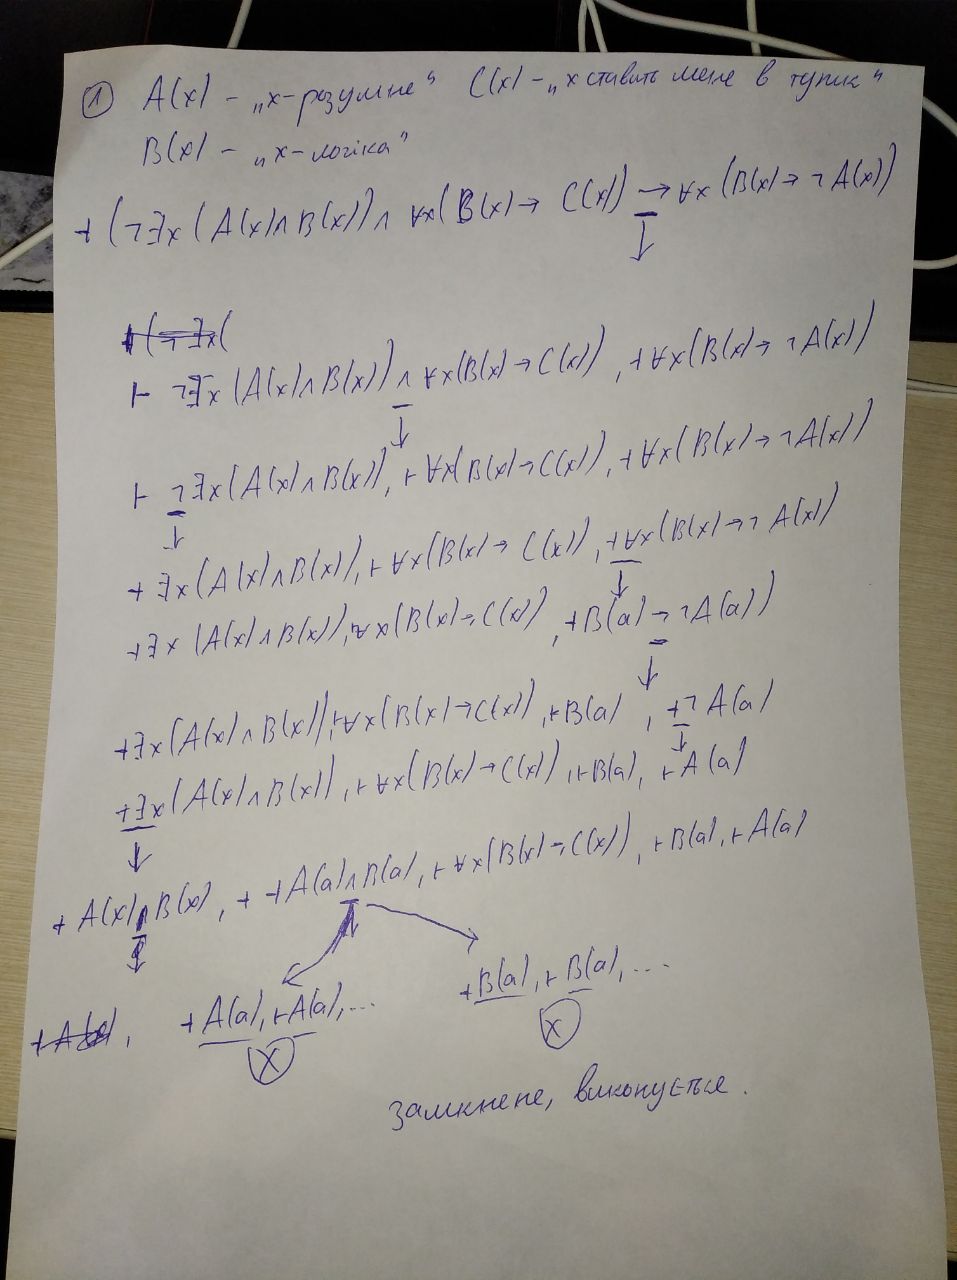 ① A(x) - „x-розумне" C(x) - „x ставить мене в тупик"
B(x) - „x-логіка"
⊣ (¬∃x (A(x)∧B(x))∧ ∀x(B(x)→ C(x)) → ∀x (B(x)→ ¬A(x))
⊢ ¬∃x (A(x)∧B(x)) ∧ ∀x(B(x)→C(x)), ⊣∀x(B(x)→ ¬A(x))
⊢ ¬∃x(A(x)∧B(x)), ⊢ ∀x(B(x)→C(x)), ⊣∀x(B(x)→¬A(x))
⊣ ∃x(A(x)∧B(x)), ⊢∀x(B(x)→ C(x)), ⊣∀x(B(x)→¬A(x))
⊣∃x (A(x)∧B(x)), ⊢∀x(B(x)→C(x)), ⊣B(a)→¬A(a))
⊣∃x(A(x)∧B(x)), ⊢∀x(B(x)→C(x)), ⊢B(a), ⊣¬A(a)
⊣∃x(A(x)∧B(x)), ⊢∀x(B(x)→C(x)), ⊢B(a), ⊢A(a)
⊣ A(x)∧B(x), ⊣ ⊣A(a)∧B(a), ⊢∀x(B(x)→C(x)), ⊢B(a), ⊢A(a)
⊣A(a), ⊢A(a), ... ⊣B(a), ⊢B(a), ...
X X
Замкнене, виконується.